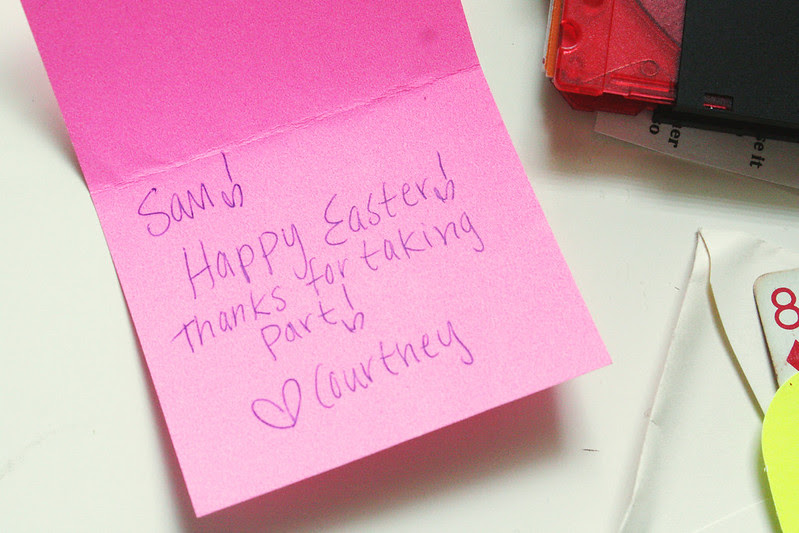 Sam!
Happy Easter!
Thanks for taking
part!
♡ Courtney
8